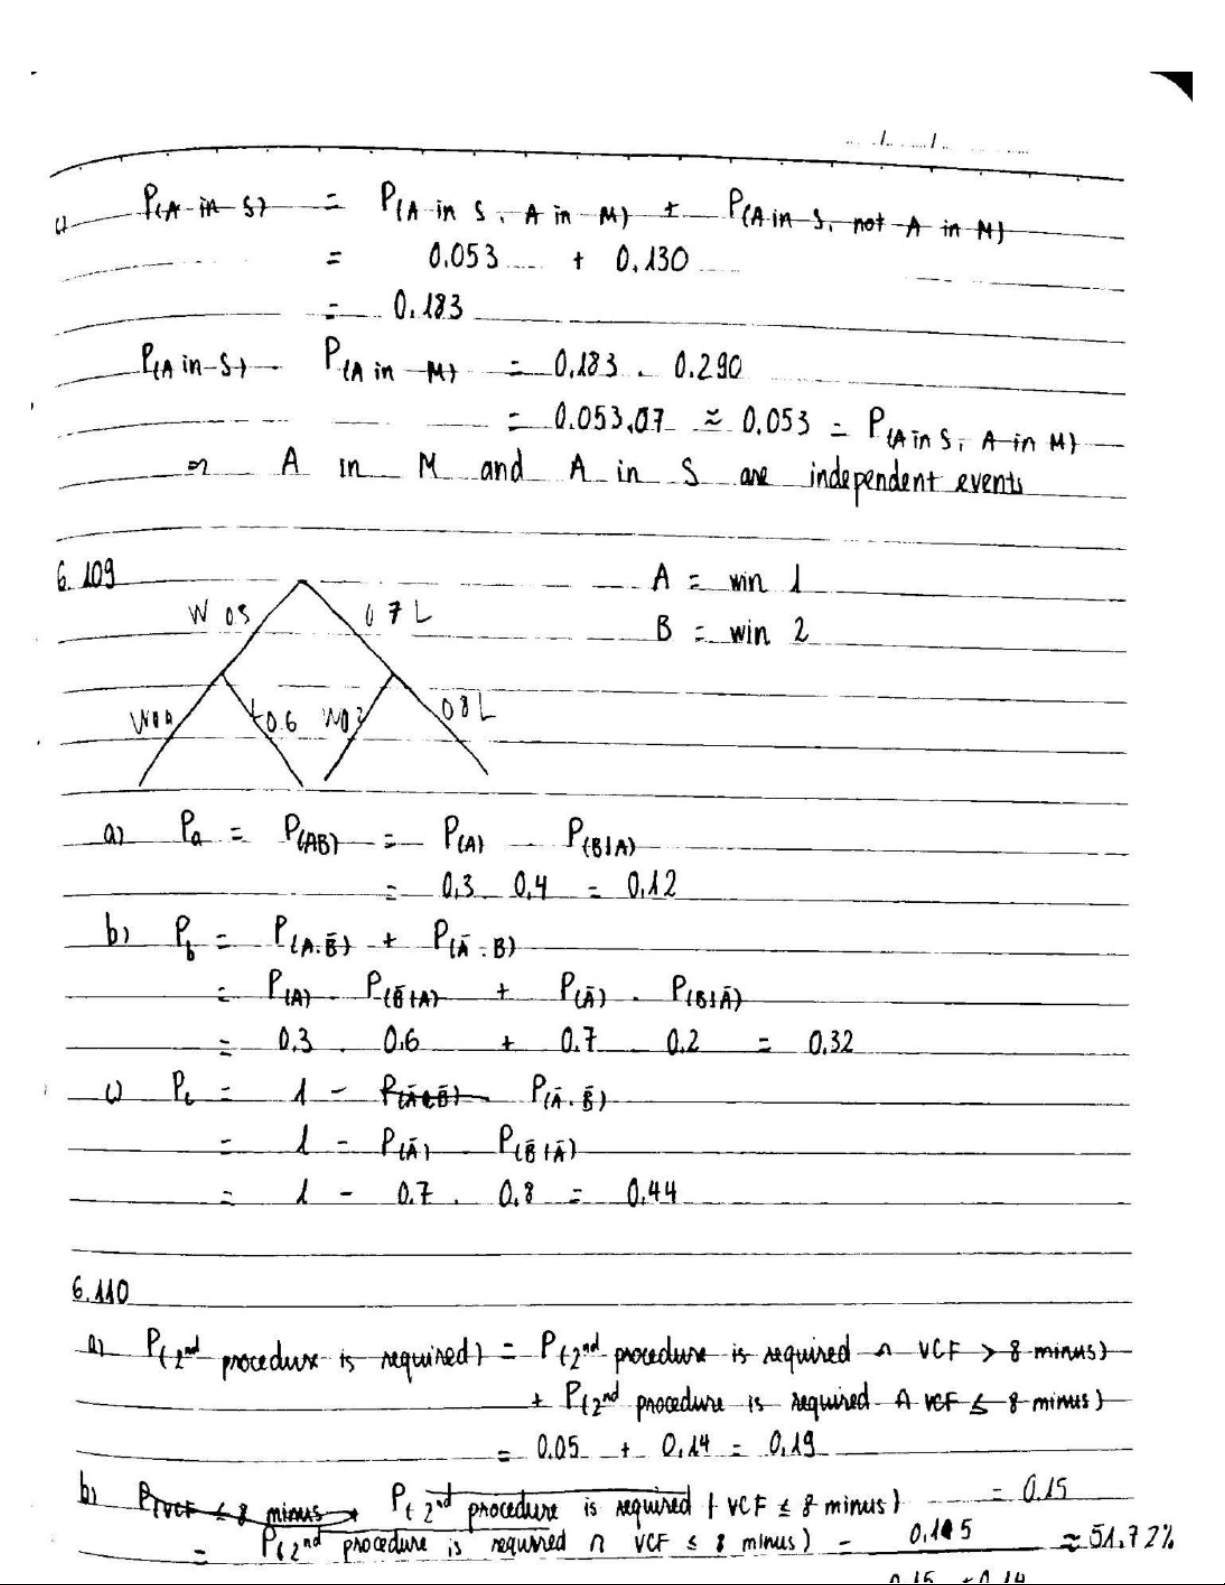 c) P(A in S) = P(A in S, A in M) + P(A in S, not A in M)
= 0.053 + 0.130
= 0.183
P(A in S) . P(A in M) = 0.183 . 0.290
= 0.053,07 ≈ 0.053 = P(A in S, A in M)
A in M and A in S are independent events
6.109
A = win 1
W 0.3 0.7 L
B = win 2
W 0.4 L 0.6 W 0.2 0.8 L
a) Pa = P(AB) = P(A) . P(B|A)
= 0.3 . 0.4 = 0.12
b) Pb = P(A.B̄) + P(Ā.B)
= P(A) . P(B̄|A) + P(Ā) . P(B|Ā)
= 0.3 . 0.6 + 0.7 . 0.2 = 0.32
c) Pc = 1 - P(Ā.B̄)
= 1 - P(Ā) . P(B̄|Ā)
= 1 - 0.7 . 0.8 = 0.44
6.110
a) P(2nd procedure is required) = P(2nd procedure is required ∩ VCF > 8 minus)
+ P(2nd procedure is required ∩ VCF ≤ 8 minus)
= 0.05 + 0.14 = 0.19
b) P(VCF ≤ 8 minus) P(2nd procedure is required | VCF ≤ 8 minus) = 0.15
= P(2nd procedure is required ∩ VCF ≤ 8 minus) = ≈ 51.72%
0.15 + 0.14